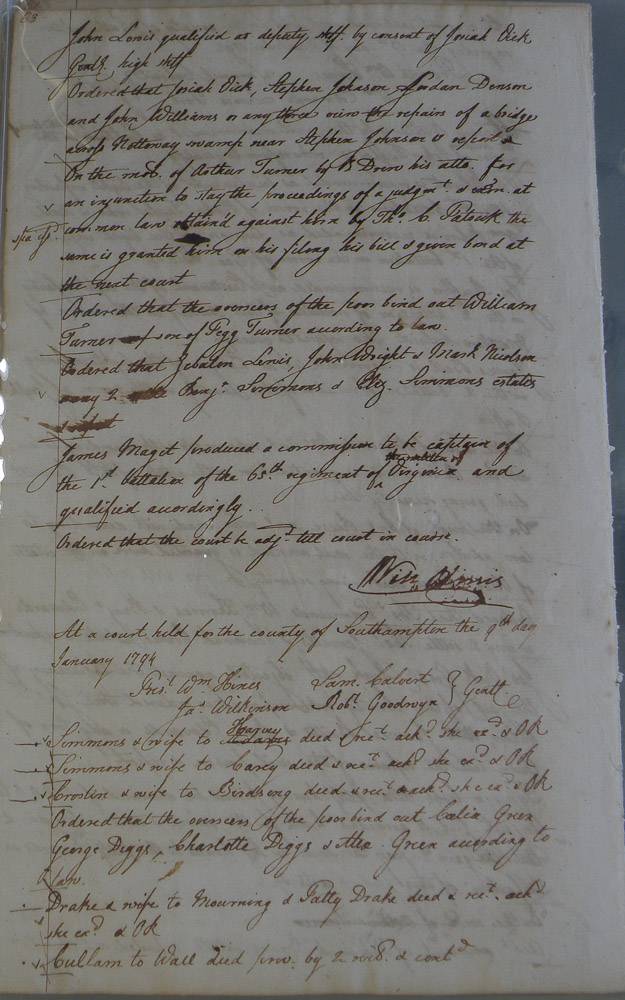 John Lewis qualified as deputy shff. by consent of Josiah Vick
Gentl. high shff
Ordered that Josiah Vick, Stephen Johnson, Jordan Denson
and John Williams or any three view the repairs of a bridge
across Nottoway swamp near Stephen Johnson's & report
On the mo. of Arthur Turner by Drew his atto. for
an injunction to stay the proceedings of a judgmt. & exon. at
common law obtain'd against him by Thos. C. the
same is granted him on his filing his bill & given bond at
the next court
Ordered that the overseers of the poor bind out William
Turner son of Pegg Turner according to law.
Ordered that Zebulon Lewis, John Wright & Mark Nicolson
Benjn. Simmons & Simmons estates
James Maget produced a commission to be captain of
the militia of
the 1st. battalion of the 65th. regiment of Virginia and
qualified accordingly.
Ordered that the court be adjd. till court in course.
Will Hines
At a court held for the county of Southampton the 9th day
January 1794
Prest. Wm. Hines Sam. Calvert
Jas. Wilkinson Robt. Goodwyn } Gentl.
Harvey
Simmons & wife to deed & rect. ackd. she exd. & OR
Simmons & wife to Carey deed & rect. ackd. she exd. & OR
Croslin & wife to Birdsong deed & rect. ackd. she exd. & OR
Ordered that the overseers of the poor bind out Celia Green
George Diggs, Charlotte Diggs & Green according to
law.
Drake & wife to Mourning & Patty Drake deed & rect. ackd
she exd. & OR
Cullam to Wall deed prov. by 2 wits. & contd